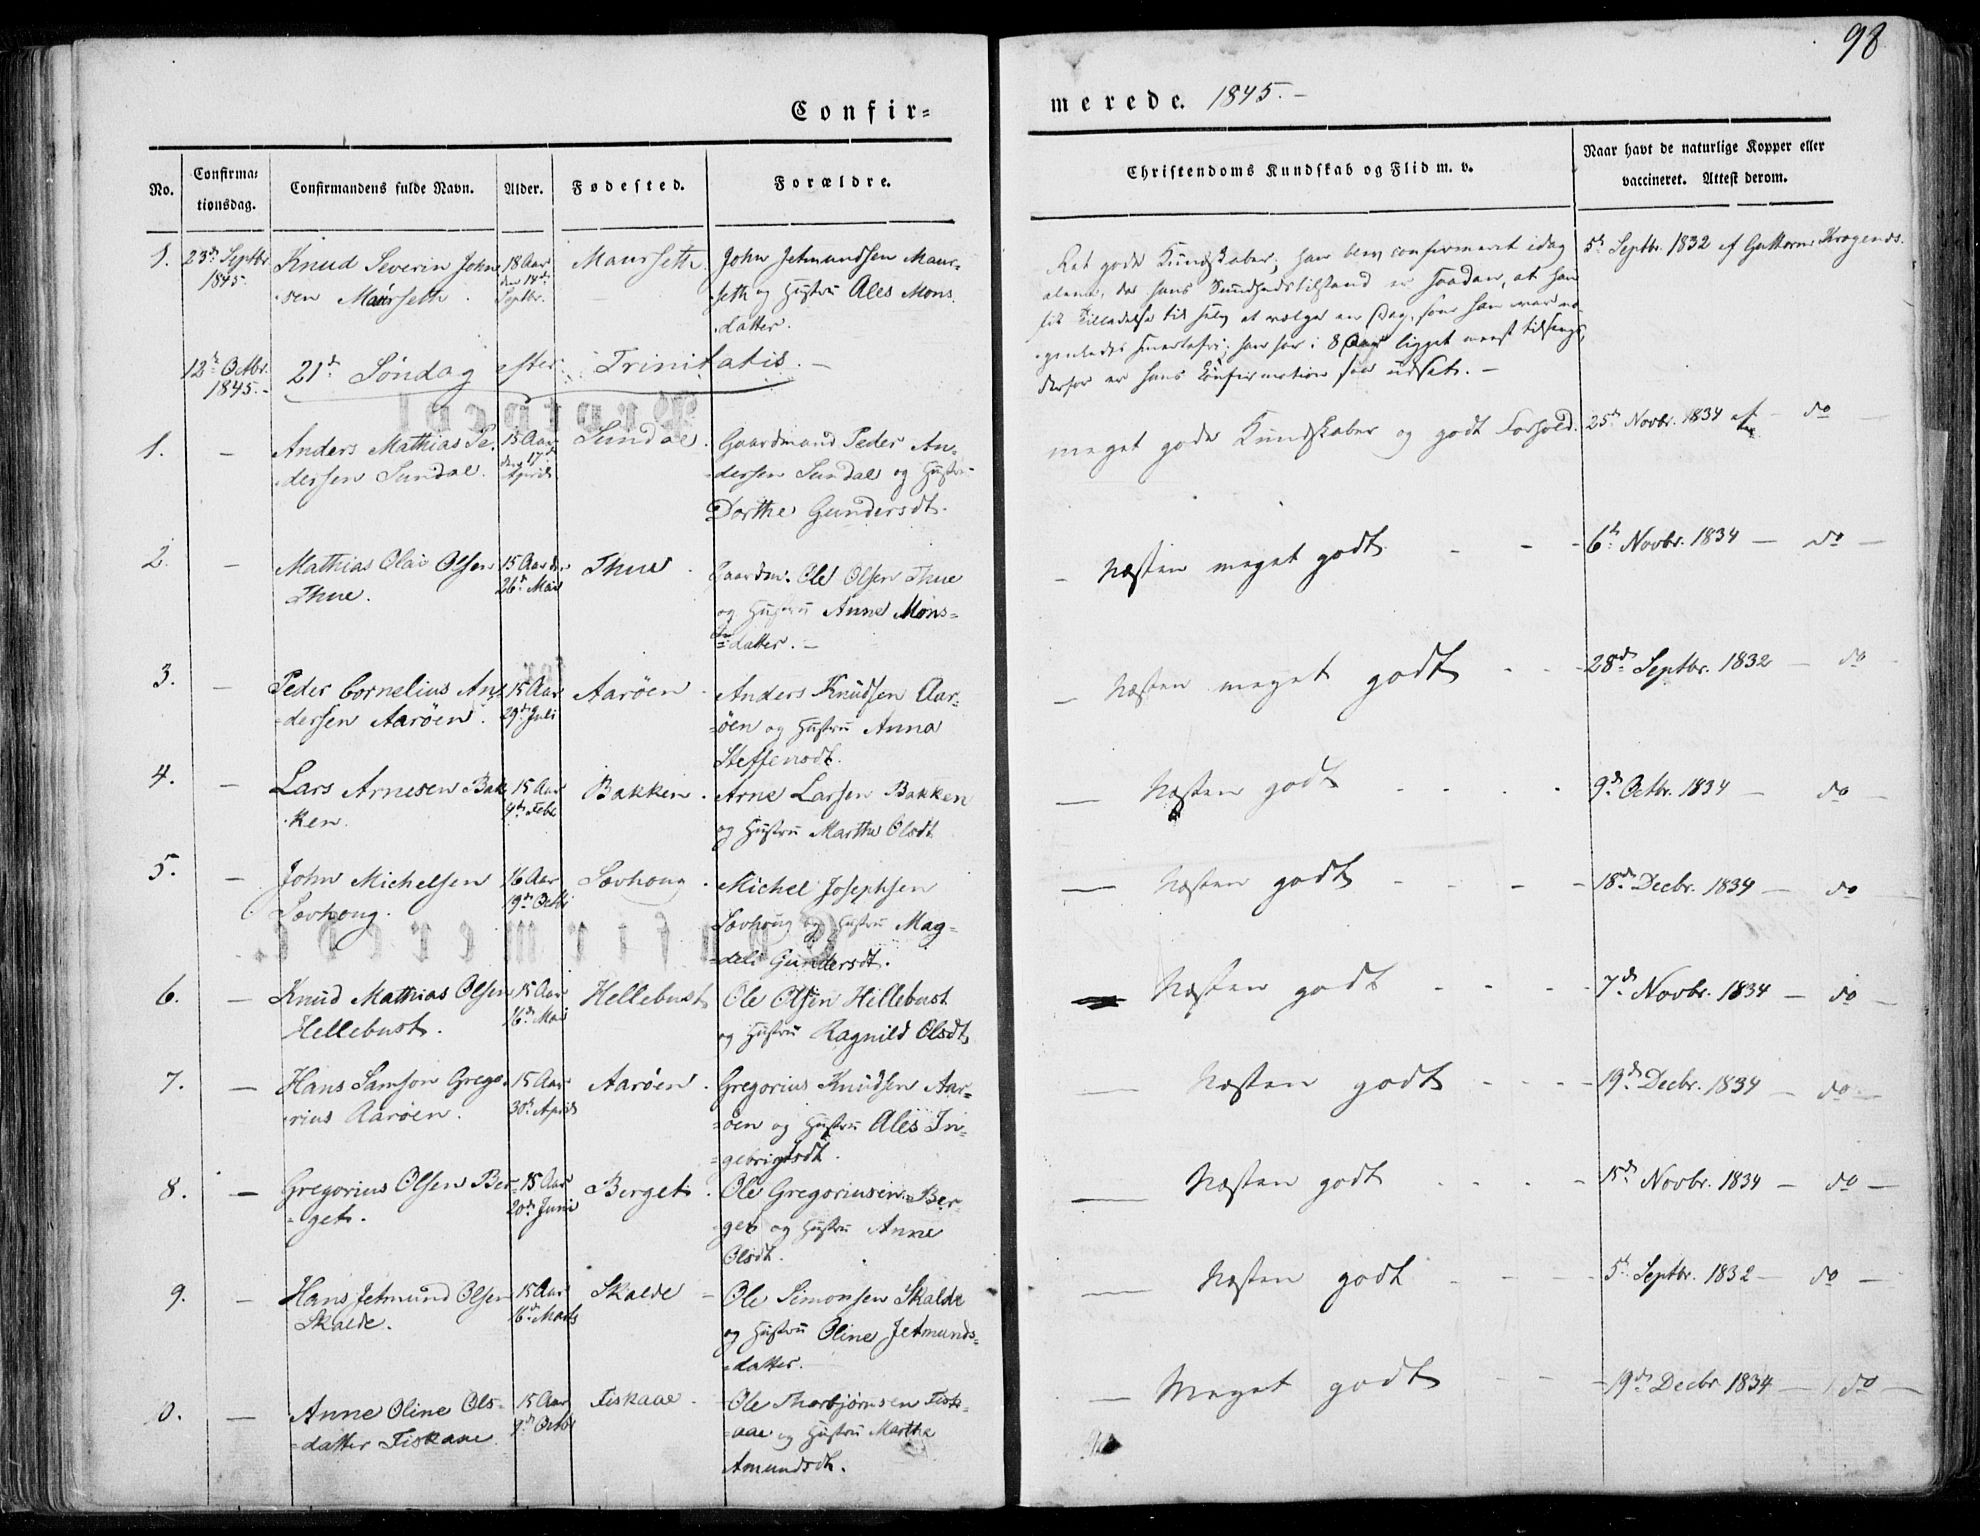 98
Confir=
merede. 1845.-
No.
Confirma=
tionsdag.
Confirmandens fulde Navn.
Alder.
Fødested.
Forældre.
Christendoms Kundskab og Flid m. v.
Naar havt de naturlige Kopper eller
vaccineret. Attest derom.
1. 23de Septbr
1845.
Knud Severin John-
sen Maurseth.
18 Aar
den 14de
Septbr.
Maurseth.
John Jetmundsen Maur-
seth og Hustru Ales Mons
datter.
Ret gode Kundskaber; han blev confirmeret idag
alene, da hans Sundhedstilstand er saadan, at han
fik Tilladelse til selv at vælge en Dag, som han var no-
genledes smertefri; han har i 8 Aar ligget meest tilsengs,
derfor er hans Confirmation saa udsat. -
5te Septbr. 1832 af Guttorm Krogenæs.
12te Octbr.
1845.-
21de Søndag efter Trinitatis. -
1. -
Anders Mathias Pe-
dersen Sundal.
15 Aar
den 17de
April
Sundal.
Gaardmand Peder An-
dersen Sundal og Hustru
Dorthe Gundersdt.
meget gode Kundskaber og godt Forhold.
25de Novbr. 1834 af - do -
2. -
Mathias Olai Olsen
Thue.
15 Aar den
26de Mai
Thue.
Gaardm. Ole Olsen Thue
og Hustru Anne Mons=
=datter. -
- Næsten meget godt - - -
6te Novbr. 1834 - do -
3. -
Peder Cornelius An-
=dersen Aarøen.
15 Aar
29de Juli
Aarøen.
Anders Knudsen Aar-
=øen og Hustru Anna
Steffensdt.
- Næsten meget godt - - -
28de Septbr. 1832 - do -
4. -
Lars Arnesen Bak-
ken.
15 Aar
9de Febr
Bakken.
Arne Larsen Bakken
og Hustru Marthe Olsdt
- Næsten godt - - -
9de Octbr. 1834 - do -
5. -
John Michelsen
Sovhoug.
16 Aar
19de Octbr
Sovhoug.
Michel Josephsen
Sovhoug og Hustru Mag=
=deli Gundersdt.
- Næsten godt - - - -
18de Decbr. 1834 - do -
6. -
Knud Mathias Olsen
Hellebust.
15 Aar
16de Mai
Hellebust
Ole Olsen Hillebust
og Hustru Ragnild Olsdt.
- Næsten godt - - -
7de Novbr. 1834 - do -
7. -
Hans Samson Grego-
rius Aarøen.
15 Aar
30de April
Aarøen.
Gregorius Knudsen Aar-
=øen og Hustru Ales In=
=gebrigtsdt.
- Næsten godt - - -
19de Decbr. 1834 - do -
8. -
Gregorius Olsen Ber-
=get.
15 Aar
20de Juni
Berget.
Ole Gregoriusen Ber-
get og Hustru Anne
Olsdt.
- Næsten godt - - -
15de Novbr. 1834 - do -
9. -
Hans Jetmund Olsen
Skalde.
15 Aar
16de Marts
Skalde -
Ole Simonsen Skalde
og Hustru Oline Jetmunds=
=datter.
- Næsten godt - - -
5te Septbr. 1832 - do -
10. -
Anne Oline Ols-
=datter Fiskaae.
15 Aar
9de Octbr
Fiskaae -
Ole Thorbjørnsen Fisk-
=aae og Hustru Marthe
Amundsdt.
- Meget godt - - -
19de Decbr 1834 - do -